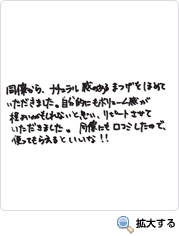 同僚から、ナチュラル感のあるまつげをほめて
いただきました。自分的にもボリューム感が
程よいかもしれないと思い、リピートさせて
いただきました。同僚にも口コミしたので、
使ってもらえるといいな!!
拡大する